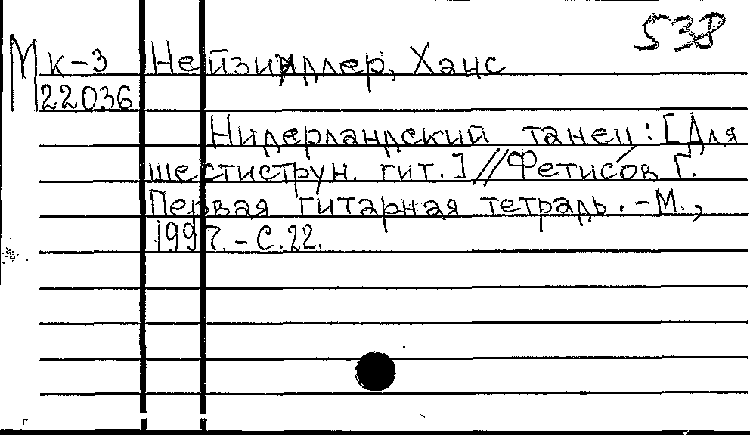 538
Мк-3 Нейзидлер, Ханс
22036
Нидерландский танец: [Для
шестиструн. гит.] // Фетисов Г.
Первая гитарная тетрадь. - М.,
1997. - С.22.